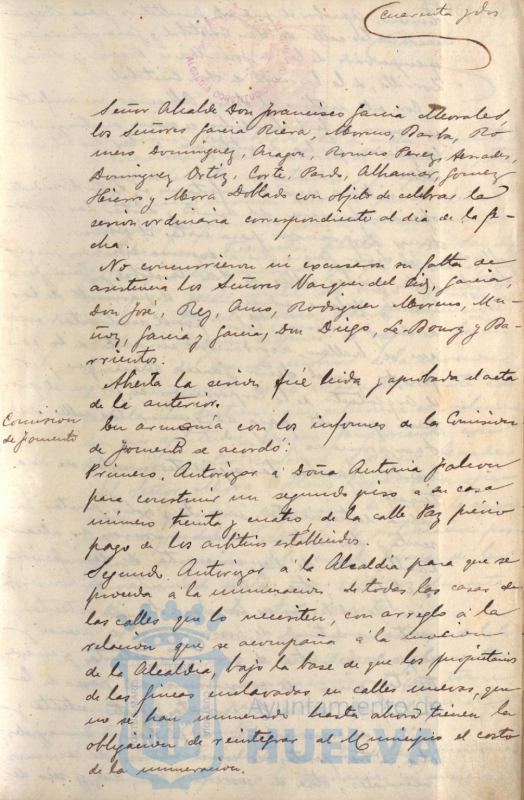 cuarenta y dos
Señor Alcalde Don Francisco García Morales,
los Señores García Riera, Moreno, Barba, Ro-
mero Dominguez, Aragon, Romero Perez,
Dominguez Ortiz, Corte, Pardo, Alhamar, Gomez
Hierro y Mora Doblado con objeto de celebrar la
sesion ordinaria correspondiente al dia de la fe-
cha.
No concurrieron ni excusaron su falta de
asistencia los Señores Vazquez del García,
Don José, Rey, Rodriguez Moreno, Mu-
ñoz, García y García, Don Diego, Le-Bourg y Ba-
rrientos.
Abierta la sesion fué leida y aprobada el acta
de la anterior.
Comision
de Fomento
En armonía con los informes de la Comision
de Fomento se acordó:
Primero. Autorizar á Doña Antonia Falcon
para construir un segundo piso a su casa
número treinta y cuatro, de la calle Paz, prévio
pago de los arbitrios establecidos.
Segundo. Autorizar a la Alcaldía para que se
proceda á la numeracion de todas las casas de
las calles que lo necesiten, con arreglo á la
relacion que se acompaña á la mocion
de la Alcaldía, bajo la base de que los propietarios
de las fincas enclavadas en calles nuevas, que
no se han numerado hasta ahora tienen la
obligacion de reintegrar al Municipio el costo
de la numeracion.
Ayuntamiento de
HUELVA